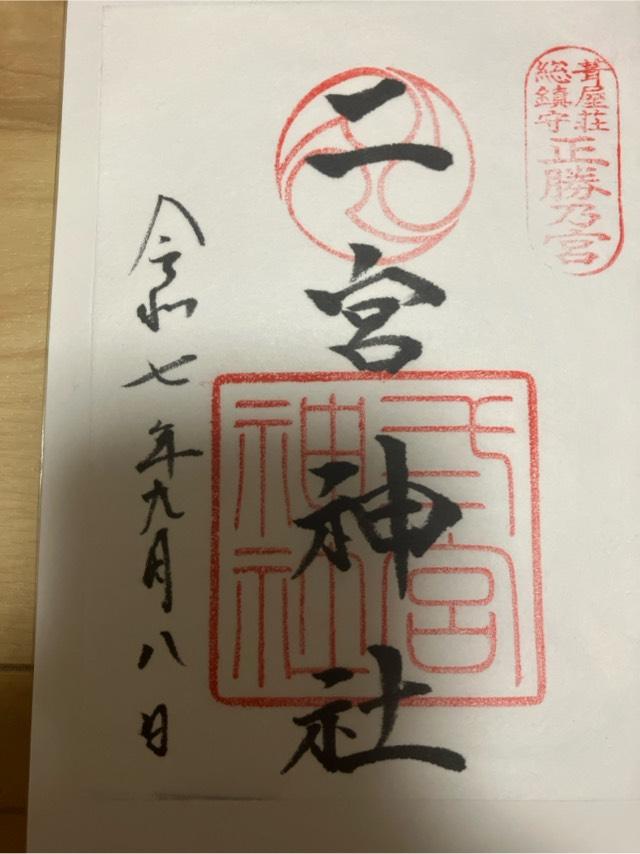 葺屋荘
総鎮守
正勝乃宮
二宮神社
弍宮
神社
令和七年九月八日